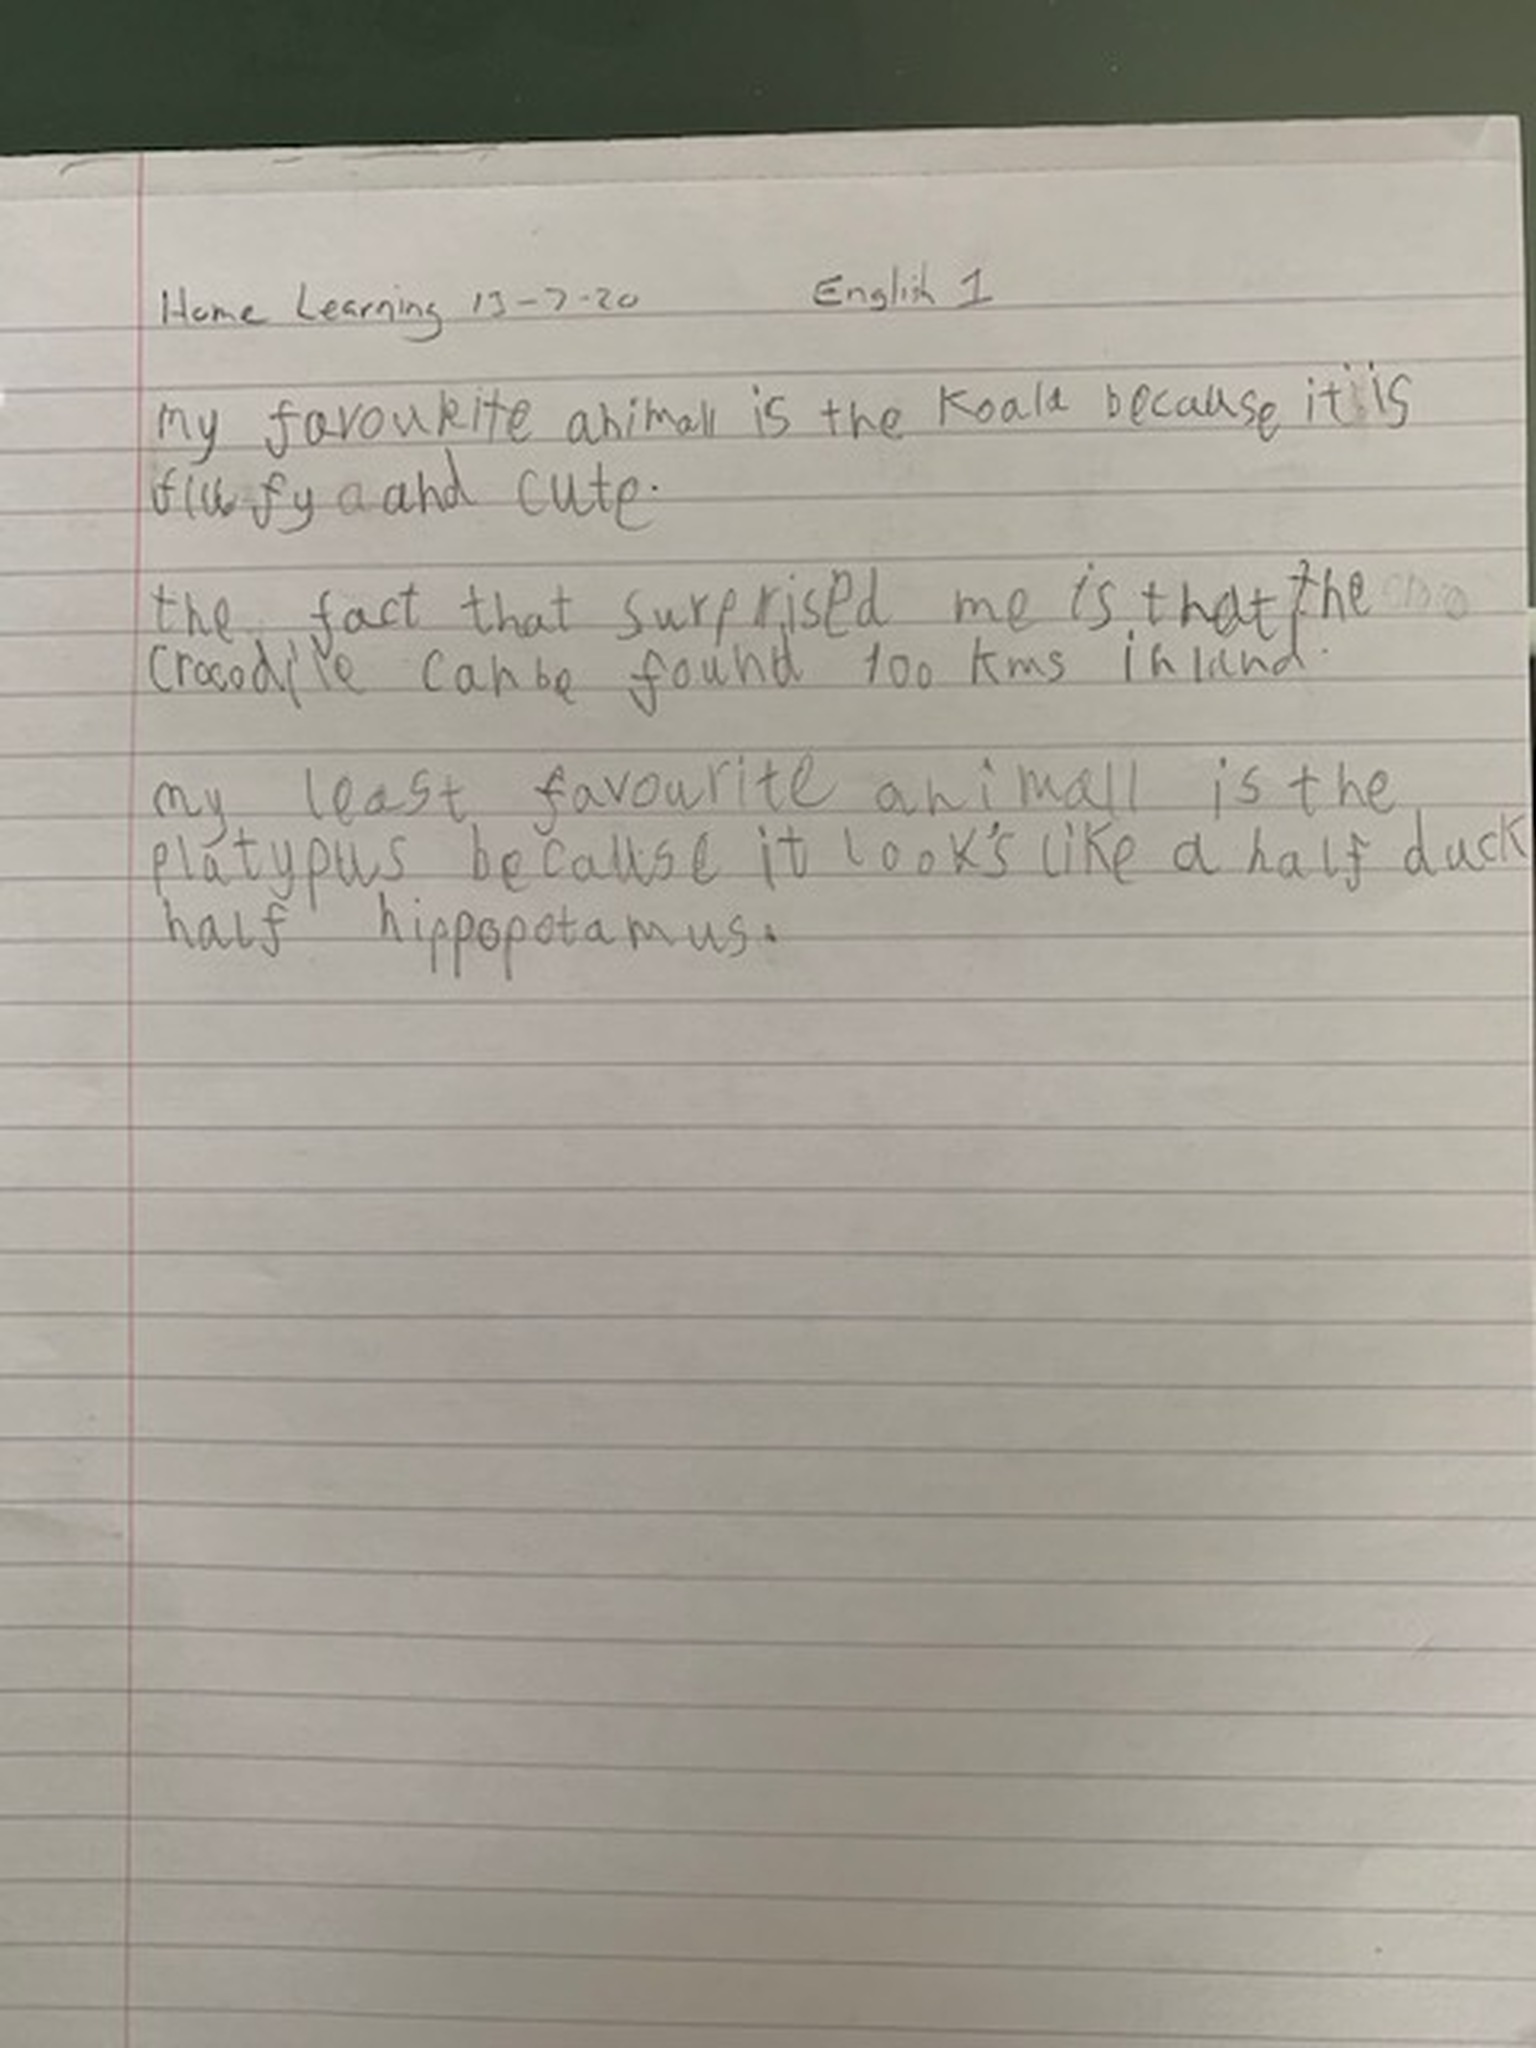 Home Learning 13-7-20 English 1
my favourite animall is the Koala because it is
flufy and cute.
the fact that surprised me is that the
crocodile can be found 100 kms inland.
my least favourite animall is the
platypus because it look's like a half duck
half hippopotamus.